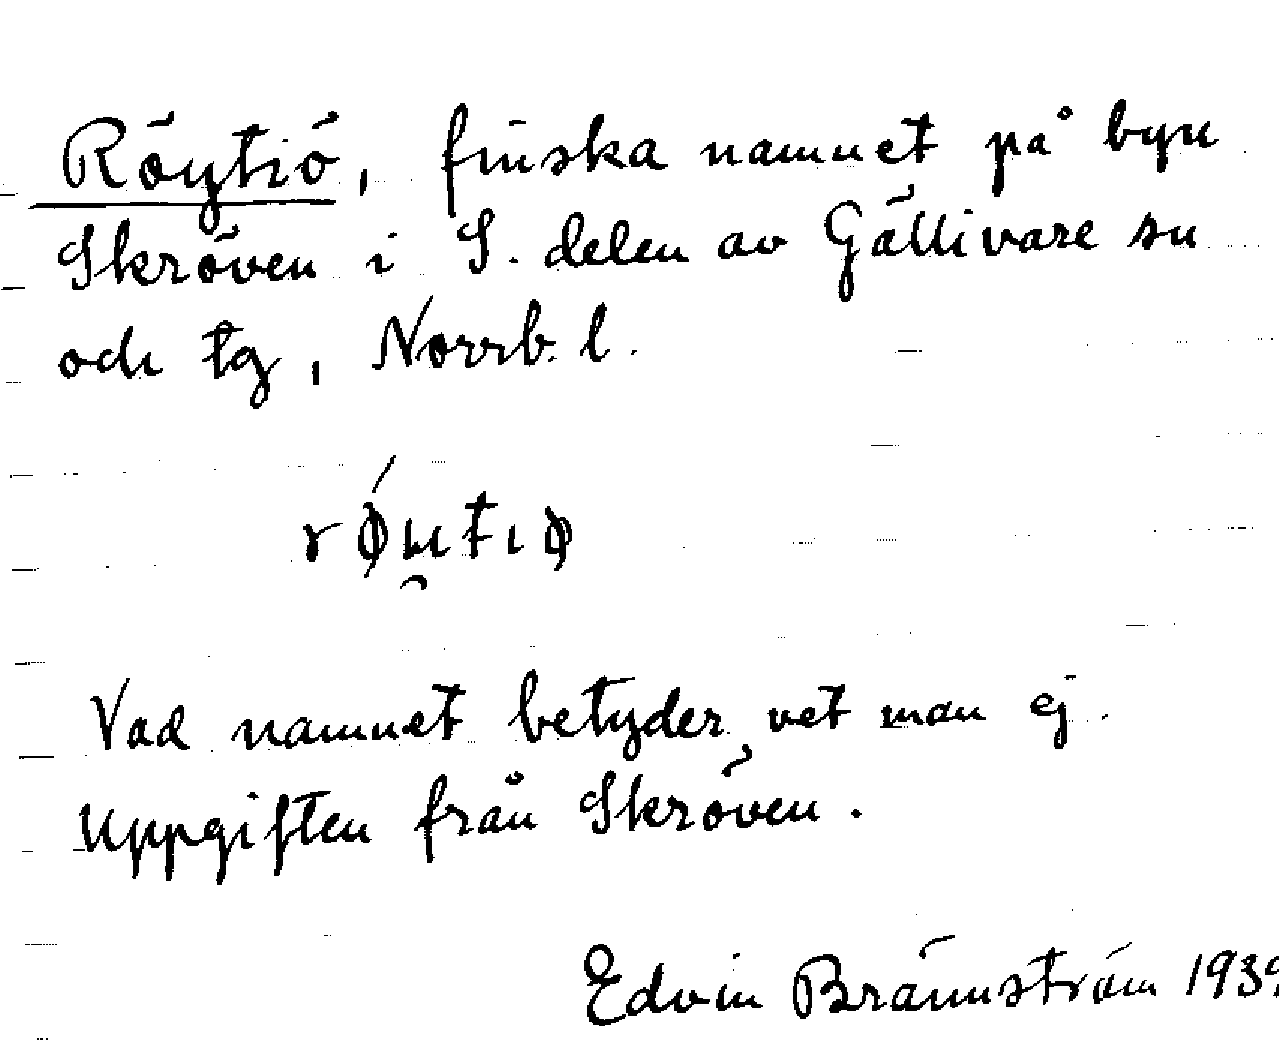 Röytiö, finska namnet på byn
Skröven i S. delen av Gällivare sn
och tg, Norrb. l.
Vad namnet betyder, vet man ej.
Uppgiften från Skröven.
Edvin Brännström 1939